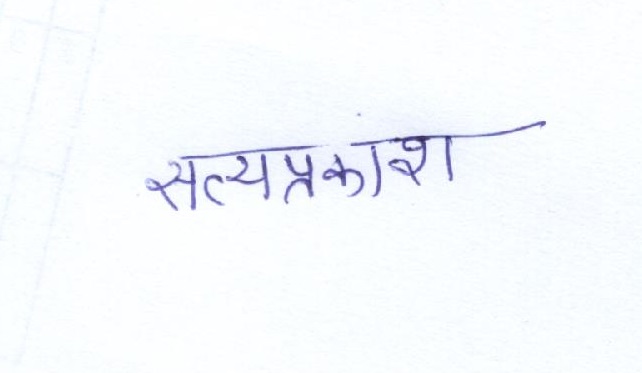 सत्यप्रकाश